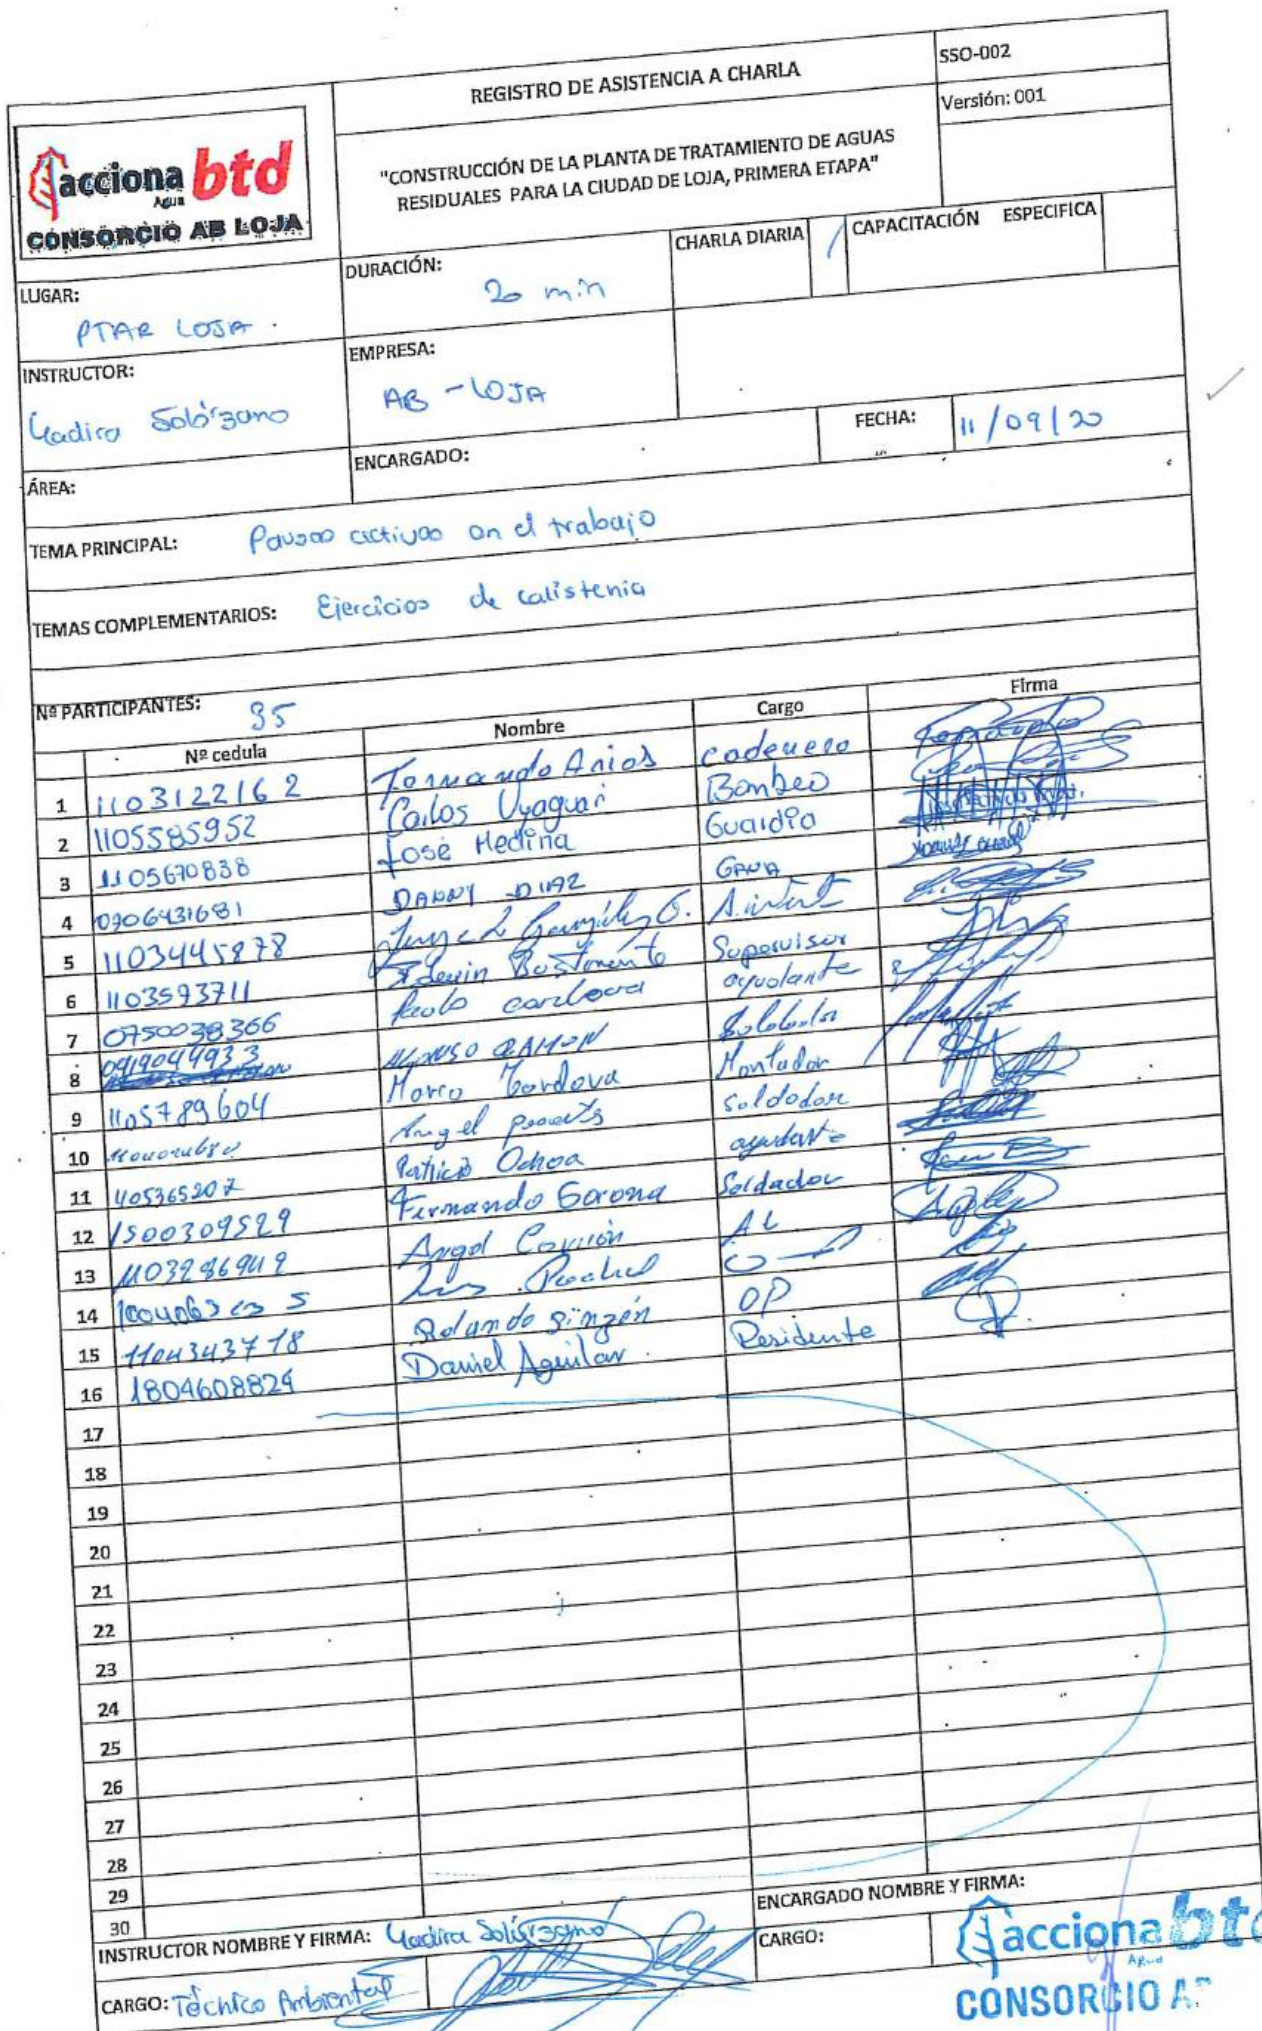 REGISTRO DE ASISTENCIA A CHARLA
SSO-002
Versión: 001
acciona btd
Agua
CONSORCIO AB LOJA
"CONSTRUCCIÓN DE LA PLANTA DE TRATAMIENTO DE AGUAS
RESIDUALES PARA LA CIUDAD DE LOJA, PRIMERA ETAPA"
LUGAR: PTAR LOJA
DURACIÓN: 20 min
CHARLA DIARIA /
CAPACITACIÓN ESPECIFICA
INSTRUCTOR: Yadira Solórzano
EMPRESA: AB - LOJA
ÁREA:
ENCARGADO:
FECHA: 11/09/20
TEMA PRINCIPAL: Pausas activas en el trabajo
TEMAS COMPLEMENTARIOS: Ejercicios de calistenia
Nº PARTICIPANTES: 35
Nº cedula Nombre Cargo Firma
1 1103122162 Fernando Arios cadenero
2 1105585952 Carlos Uyaguari Bombeo
3 1105670838 José Medina Guardia
4 0706431681 DANNY DIAZ
5 1103445878 Jorge L González G.
6 1103593711 Edwin Bustamante Supervisor
7 0750038366 Paulo cordova ayudante
8 0919044933 ALONSO RAMON Soldador
9 1105789604 Marco Cordova Montador
10 Angel Soldador
11 1105365207 Patricio Ochoa ayudante
12 1500309529 Fernando Gaona Soldador
13 1103286949 Angel Carrión AL
14 Luis
15 1104343718 Rolando Pinzón OP
16 1804608824 Daniel Aguilar Residente
17
18
19
20
21
22
23
24
25
26
27
28
29
30
INSTRUCTOR NOMBRE Y FIRMA: Yadira Solórzano
ENCARGADO NOMBRE Y FIRMA:
CARGO: Técnico Ambiental
CARGO:
acciona btd
Agua
CONSORCIO A